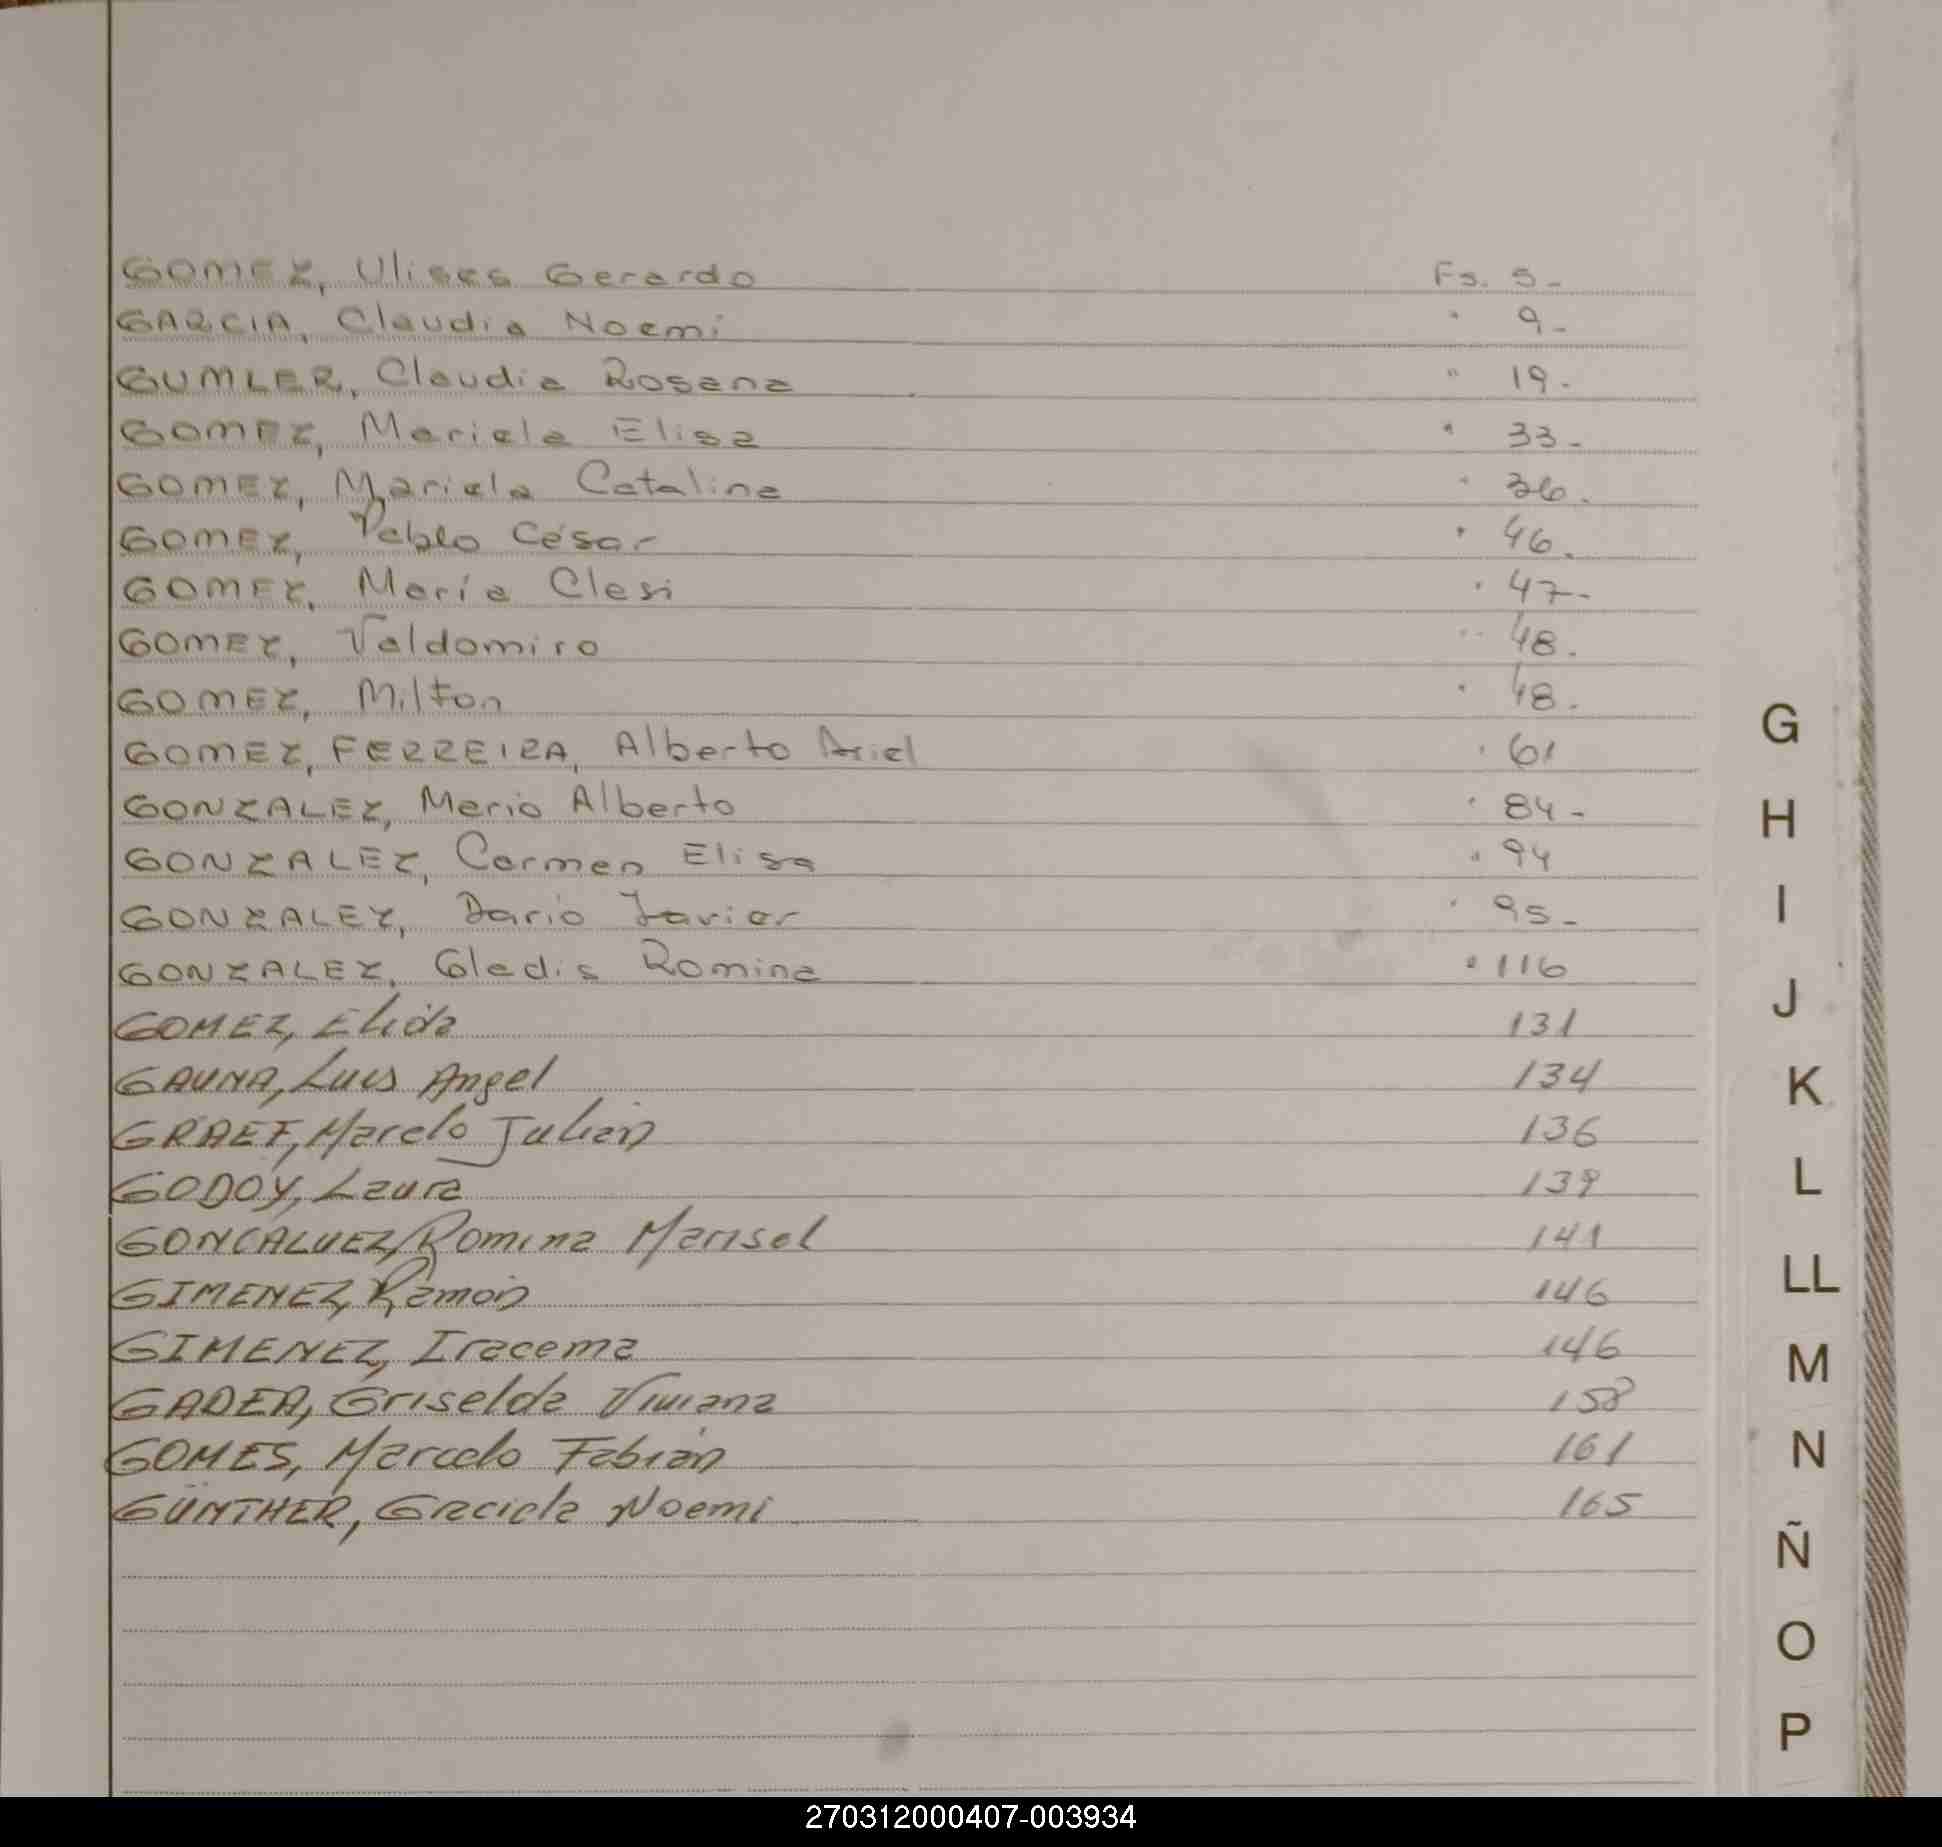 GOMEZ, Ulises Gerardo Fs. 5-
GARCIA, Claudia Noemi " 9-
GUMLER, Claudia Rosana " 19-
GOMEZ, Mariela Elisa " 33-
GOMEZ, Mariela Catalina " 36.
GOMEZ, Pablo César " 46.
GOMEZ, María Clesi " 47-
GOMEZ, Valdomiro " 48.
GOMEZ, Milton " 48.
GOMEZ, FERREIRA, Alberto Ariel " 61
GONZALEZ, Mario Alberto " 84-
GONZALEZ, Carmen Elisa " 94
GONZALEZ, Darío Javier " 95-
GONZALEZ, Gladis Romina " 116
GOMEZ, Elida 131
GAUNA, Luis Angel 134
GRAEF, Marelo Julián 136
GODOY, Laura 139
GONCALVEZ, Romina Marisel 141
GIMENEZ, Ramón 146
GIMENEZ, Iracema 146
GADEA, Griselda Viviana 158
GOMES, Marcelo Fabián 161
GÜNTHER, Graciela Noemi 165
G
H
I
J
K
L
LL
M
N
Ñ
O
P
270312000407-003934